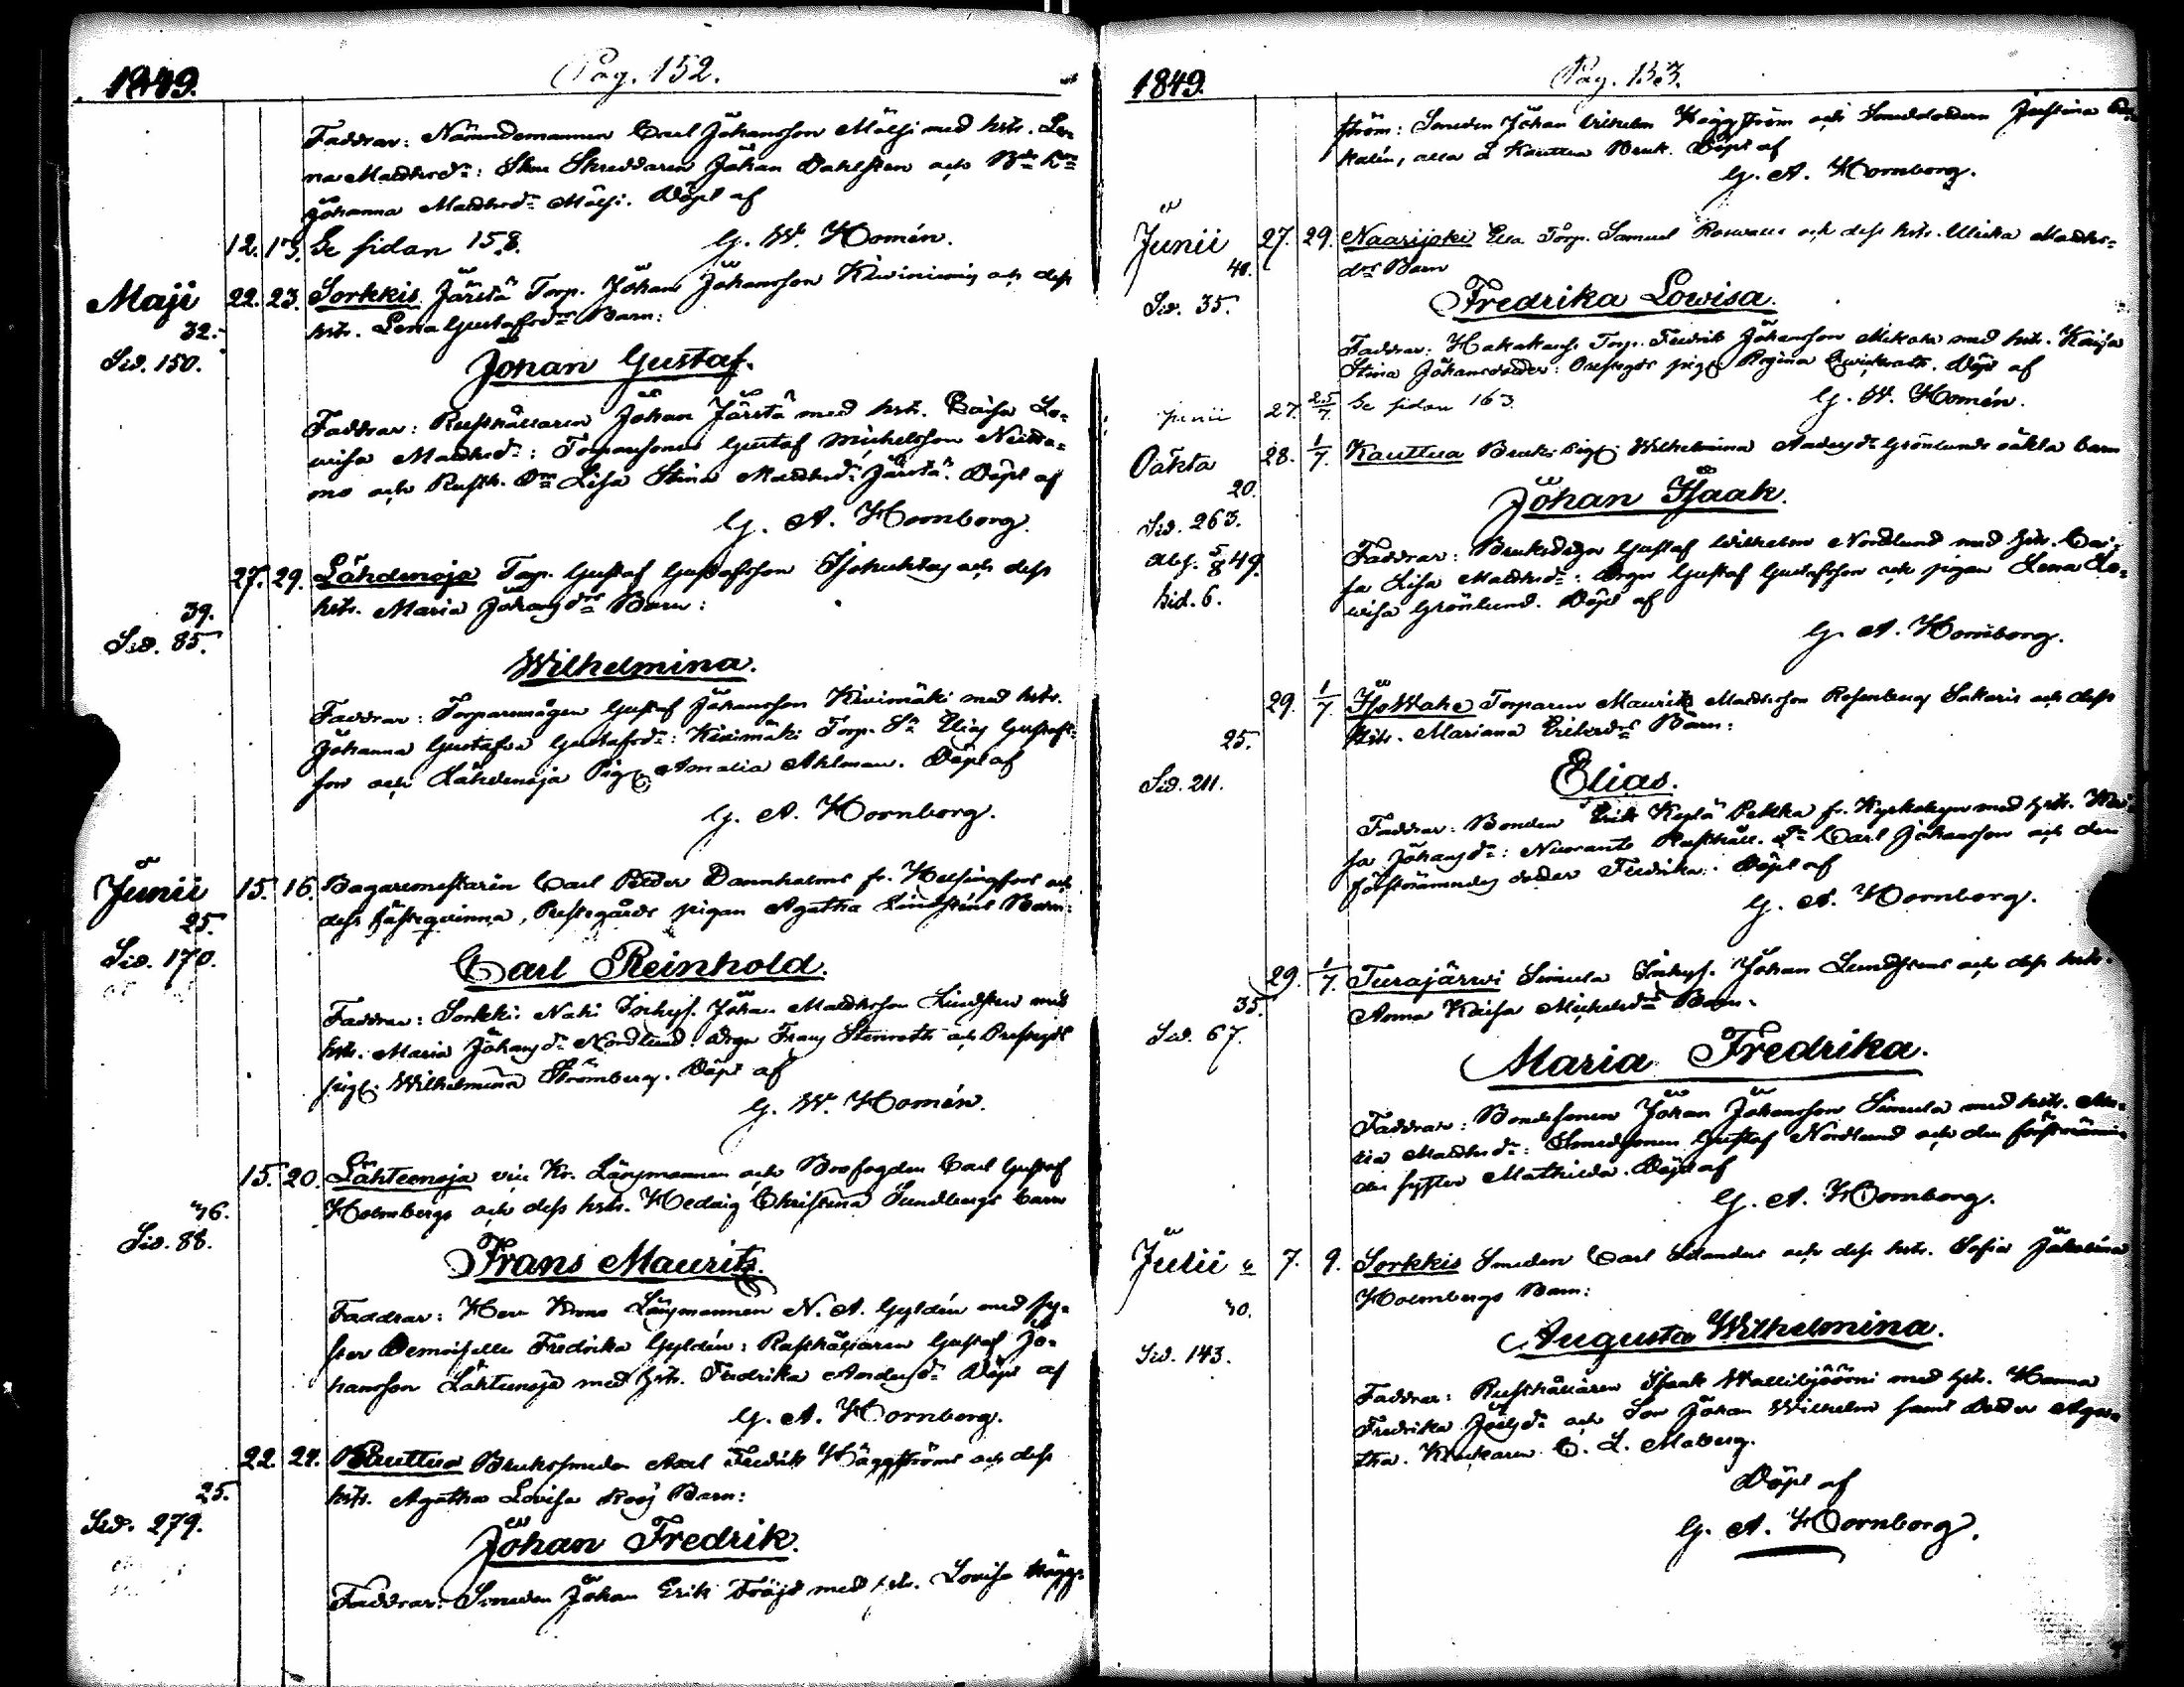 1849.
Pag. 152.
Faddrar: Nämndemannen Carl Johansson Mälsi med hstr. Le-
na Mattsdr: Skom Skreddaren Johan Dahlsten och
Johanna Mattsdr Mälsi. Döpt af
12. 13. Se sidan 158. G. W. Homén.
Maji 22. 23. Sorkkis Järstä Torp. Johan Johansson Kiviniemis och dess
32. hstr. Lena Gustafsdrs Barn:
Sid. 150.
Johan Gustaf.
Faddrar: Rusthållaren Johan Järstä med hstr. Caisa Lo-
wisa Mattsdr: Torparesonen Gustaf Michelsson Neitta-
mo och Rusth. Dr Lisa Stina Mattsdr Järstä. Döpt af
G. A. Hornborg.
27. 29. Lähdenoja Torp. Gustaf Gustafsson Isokuktas och dess
hstr. Maria Johansdrs Barn:
39.
Sid. 85.
Wilhelmina.
Faddrar: Torparemågen Gustaf Johansson Kivimäki med hstr.
Johanna Gustafva Gustafsdr: Kivimäki Torp. Sn Elias Gustafs-
son och Lähdenoja Pig. Amalia Ahlman. Döpt af
G. A. Hornborg.
Junii 15. 16. Bagaremestaren Carl Peter Dannholms fr. Helsingfors och
25. dess fästeqvinna, Prestegårds pigan Agatha Lindsténs Barn:
Sid. 170.
Carl Reinhold.
Faddrar: Sorkkis Nahi Inhys. Johan Mattsson Lindsten med
hstr. Maria Johansdr Nordlund: Drgn Frans Stenroth och Prestgds
pig. Wilhelmina Strömberg. Döpt af
G. W. Homén.
15. 20. Lähteenoja vic. Kr. Länsmannen och Brofogden Carl Gustaf
Holmbergs och dess hstr. Hedvig Christina Sundbergs barn
46.
Sid. 88.
Frans Maurits.
Faddrar: Herr Krono Länsmannen N. A. Gyldén med sy-
ster Demoiselle Fredrika Gyldén: Rusthållaren Gustaf Jo-
hansson Lähteenoja med hstr. Fredrika Andersdr Döpt af
G. A. Hornborg.
22. 24. Kauttua Bruksmeden Axel Fredrik Häggströms och dess
25. hstr. Agatha Lovisa Roos Barn:
Sid. 279.
Johan Fredrik.
Faddrar: Smeden Johan Erik Fröjd med hstr. Lovisa Hägg-
1849.
Pag. 153.
ström: Smeden Johan Vilhelm Häggström och Smeddottern Justina
kalén, alla å Kauttua Bruk. Döpt af
G. A. Hornborg.
Junii 27. 29. Naarijoki Ela Torp. Samuel Roswalls och dess hstr. Ulrika Matts-
40. drs Barn
Sid. 35.
Fredrika Lowisa.
Faddrar: Hakakans. Torp. Fredrik Johansson Mikola med hstr. Kaisa
Stina Johansdotter: Prestegds pig. Regina Qwickvalt. Döpt af
G. W. Homén.
Junii 27. 25/7. Se sidan 163.
Oäkta 28. 1/7. Kauttua Bruks Pig. Wilhelmina Andersdr Grönlunds oäkta barn
20.
Johan Isaak.
Sid. 263.
Abs. 5/8 49.
hid. 6.
Faddrar: Bruksdrgn Gustaf Wilhelm Nordlund med hstr. Cai-
sa Lisa Mattsdr: Drgn Gustaf Gustafsson och pigan Lena Lo-
wisa Grönlund. Döpt af
G. A. Hornborg.
29. 1/7. IsoWahe Torparen Maurits Mattsson Rosenberg Sakaris och dess
hstr. Mariana Eriksdrs Barn:
25.
Sid. 211.
Elias.
Faddrar: Bonden Erik Keplä Pekka fr. Kyrkobyn med hstr. Kai-
sa Johansdr: Nuoranto Rusthåll. Sn Carl Johansson och den
förstnämndes dotter Fredrika. Döpt af
G. A. Hornborg.
29. 1/7. Turajärvi Simula Inhys. Johan Lundstens och dess hstr.
35. Anna Kaisa Michelsdrs Barn.
Sid. 67.
Maria Fredrika.
Faddrar: Bondesonen Johan Johansson Simula med hstr. Ma-
ria Mattsdr: Smedsonen Gustaf Nordlund och den förstnämn-
des syster Mathilda. Döpt af
G. A. Hornborg.
Julii 7. 9. Sorkkis Smeden Carl Selanders och dess hstr. Sofia Jakobina
Holmbergs Barn:
40.
Sid. 143.
Augusta Wilhelmina.
Faddrar: Rusthållaren Isaak Wallibjööni med hstr. Hanna
Fredrika Joelsdr och Son Johan Wilhelm samt dotter Aga-
tha. Klockaren C. L. Malberg.
Döpt af
G. A. Hornborg.